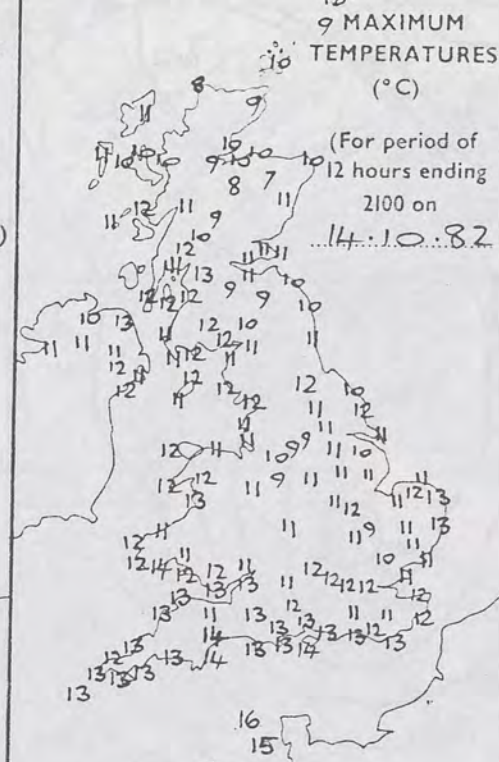 9 MAXIMUM
TEMPERATURES
(°C)
(For period of
12 hours ending
2100 on
14.10.82
10
8
9
11
10
11 10 10 10 9 10 10 10
8 7
11
12 11
11 9
10
12
11 11
11 11
13
10
12 12 12
9 9
10
10 13
12 10
11 11 11
12
11
11 12 11
11
12
11
12
12
12
11
12
12
12
10
11
12
11
11
11
12 11
9
10 9
11 10
9
11 11
11
11
12 12
13
11
11 12 11 12 13
11
11
9
11 13
11
12
11
12 14 12
12 11
10 11
11
13 13
12 12 12 12
11
12
13
13
11 13
12
13
11 11 12
14
13
13 12
13
12 13 13 13 13 14
13 13 14
13 13
13
16
15